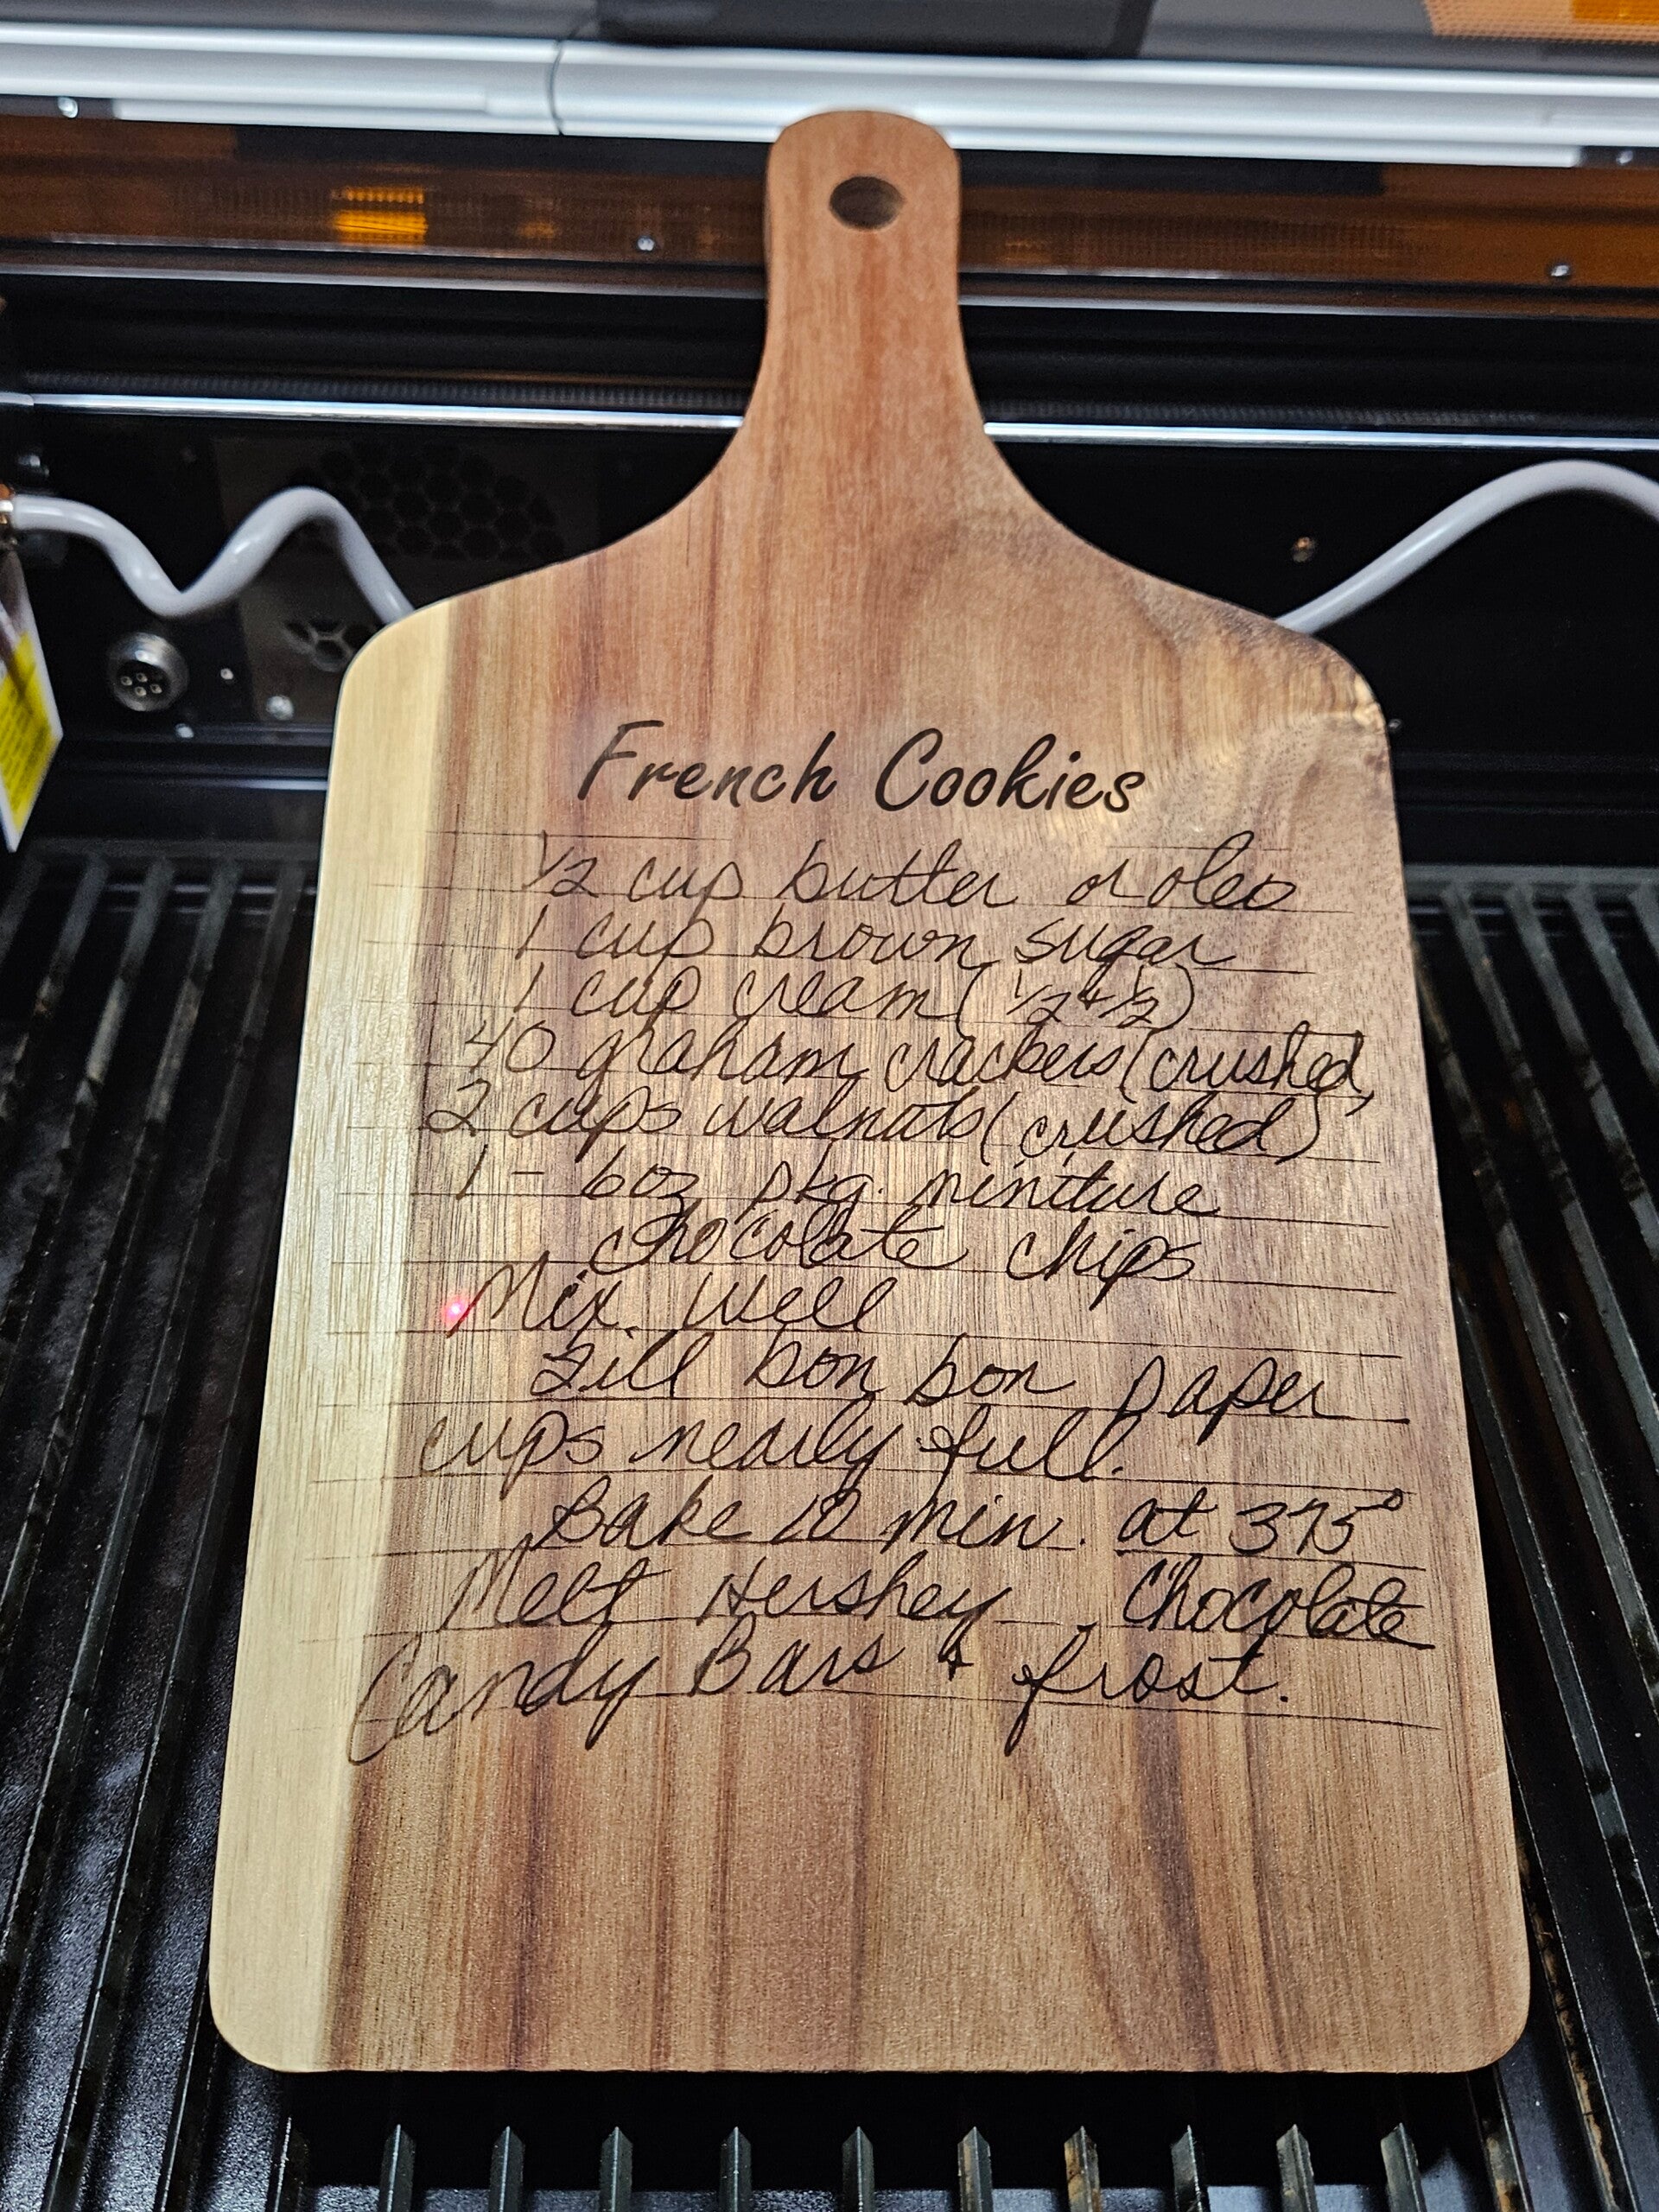 French Cookies
1/2 cup butter or oleo
1 cup brown sugar
1 cup cream (1/2 + 1/2)
40 graham crackers (crushed)
2 cups walnuts (crushed)
1 - 6 oz pkg. miniture
chocolate chips
Mix Well
Fill bon bon paper
cups nearly full.
Bake 10 min. at 375°
Melt Hershey Chocolate
Candy Bars + frost.